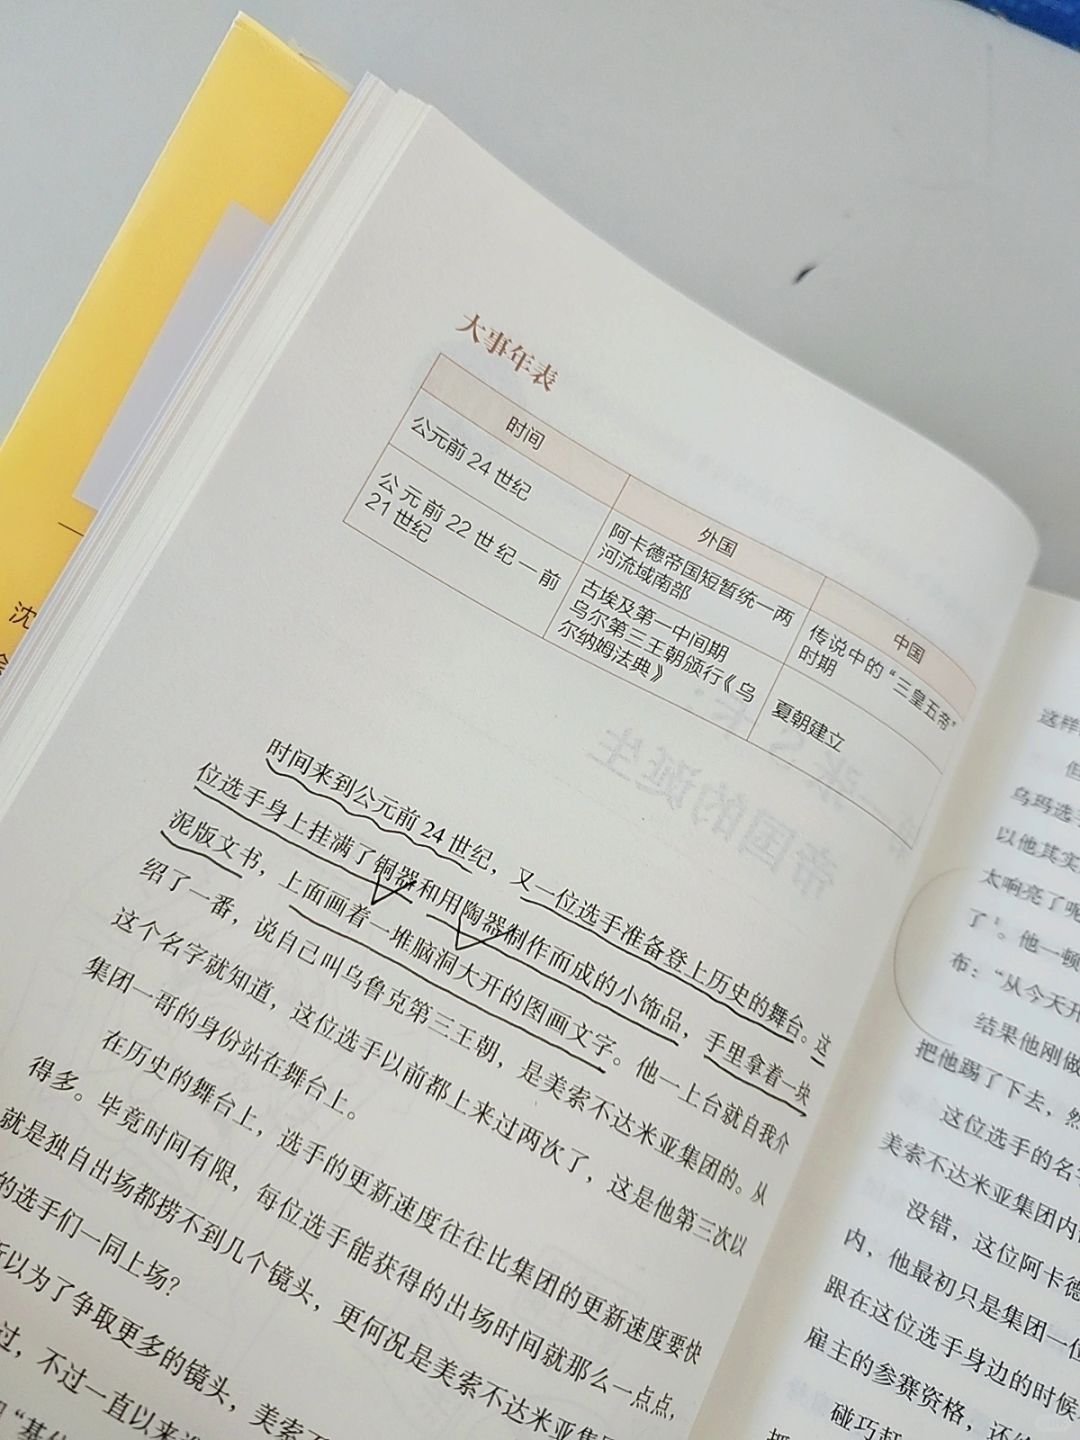 大事年表
时间
外国
中国
公元前 24 世纪
阿卡德帝国短暂统一两
河流域南部
传说中的“三皇五帝”
时期
公元前 22 世纪—前
21 世纪
古埃及第一中间期
乌尔第三王朝颁行《乌
尔纳姆法典》
夏朝建立
时间来到公元前 24 世纪，又一位选手准备登上历史的舞台。这
位选手身上挂满了铜器和用陶器制作而成的小饰品，手里拿着一块
泥版文书，上面画着一堆脑洞大开的图画文字。他一上台就自我介
绍了一番，说自己叫乌鲁克第三王朝，是美索不达米亚集团的。从
这个名字就知道，这位选手以前都上来过两次了，这是他第三次以
集团一哥的身份站在舞台上。
在历史的舞台上，选手的更新速度往往比集团的更新速度要快
得多。毕竟时间有限，每位选手能获得的出场时间就那么一点点，
就是独自出场都捞不到几个镜头，更何况是美索不达米亚集
的选手们一同上场？
所以为了争取更多的镜头，美索不
过，不过一直以来
这样
但
乌玛选
以他其实
太响亮了呢
了¹。他一顿
布：“从今天开
结果他刚做
把他踢了下去，然
这位选手的名
美索不达米亚集团内
没错，这位阿卡德
内，他最初只是集团一位
跟在这位选手身边的时候
雇主的参赛资格，还
碰巧赶
沈